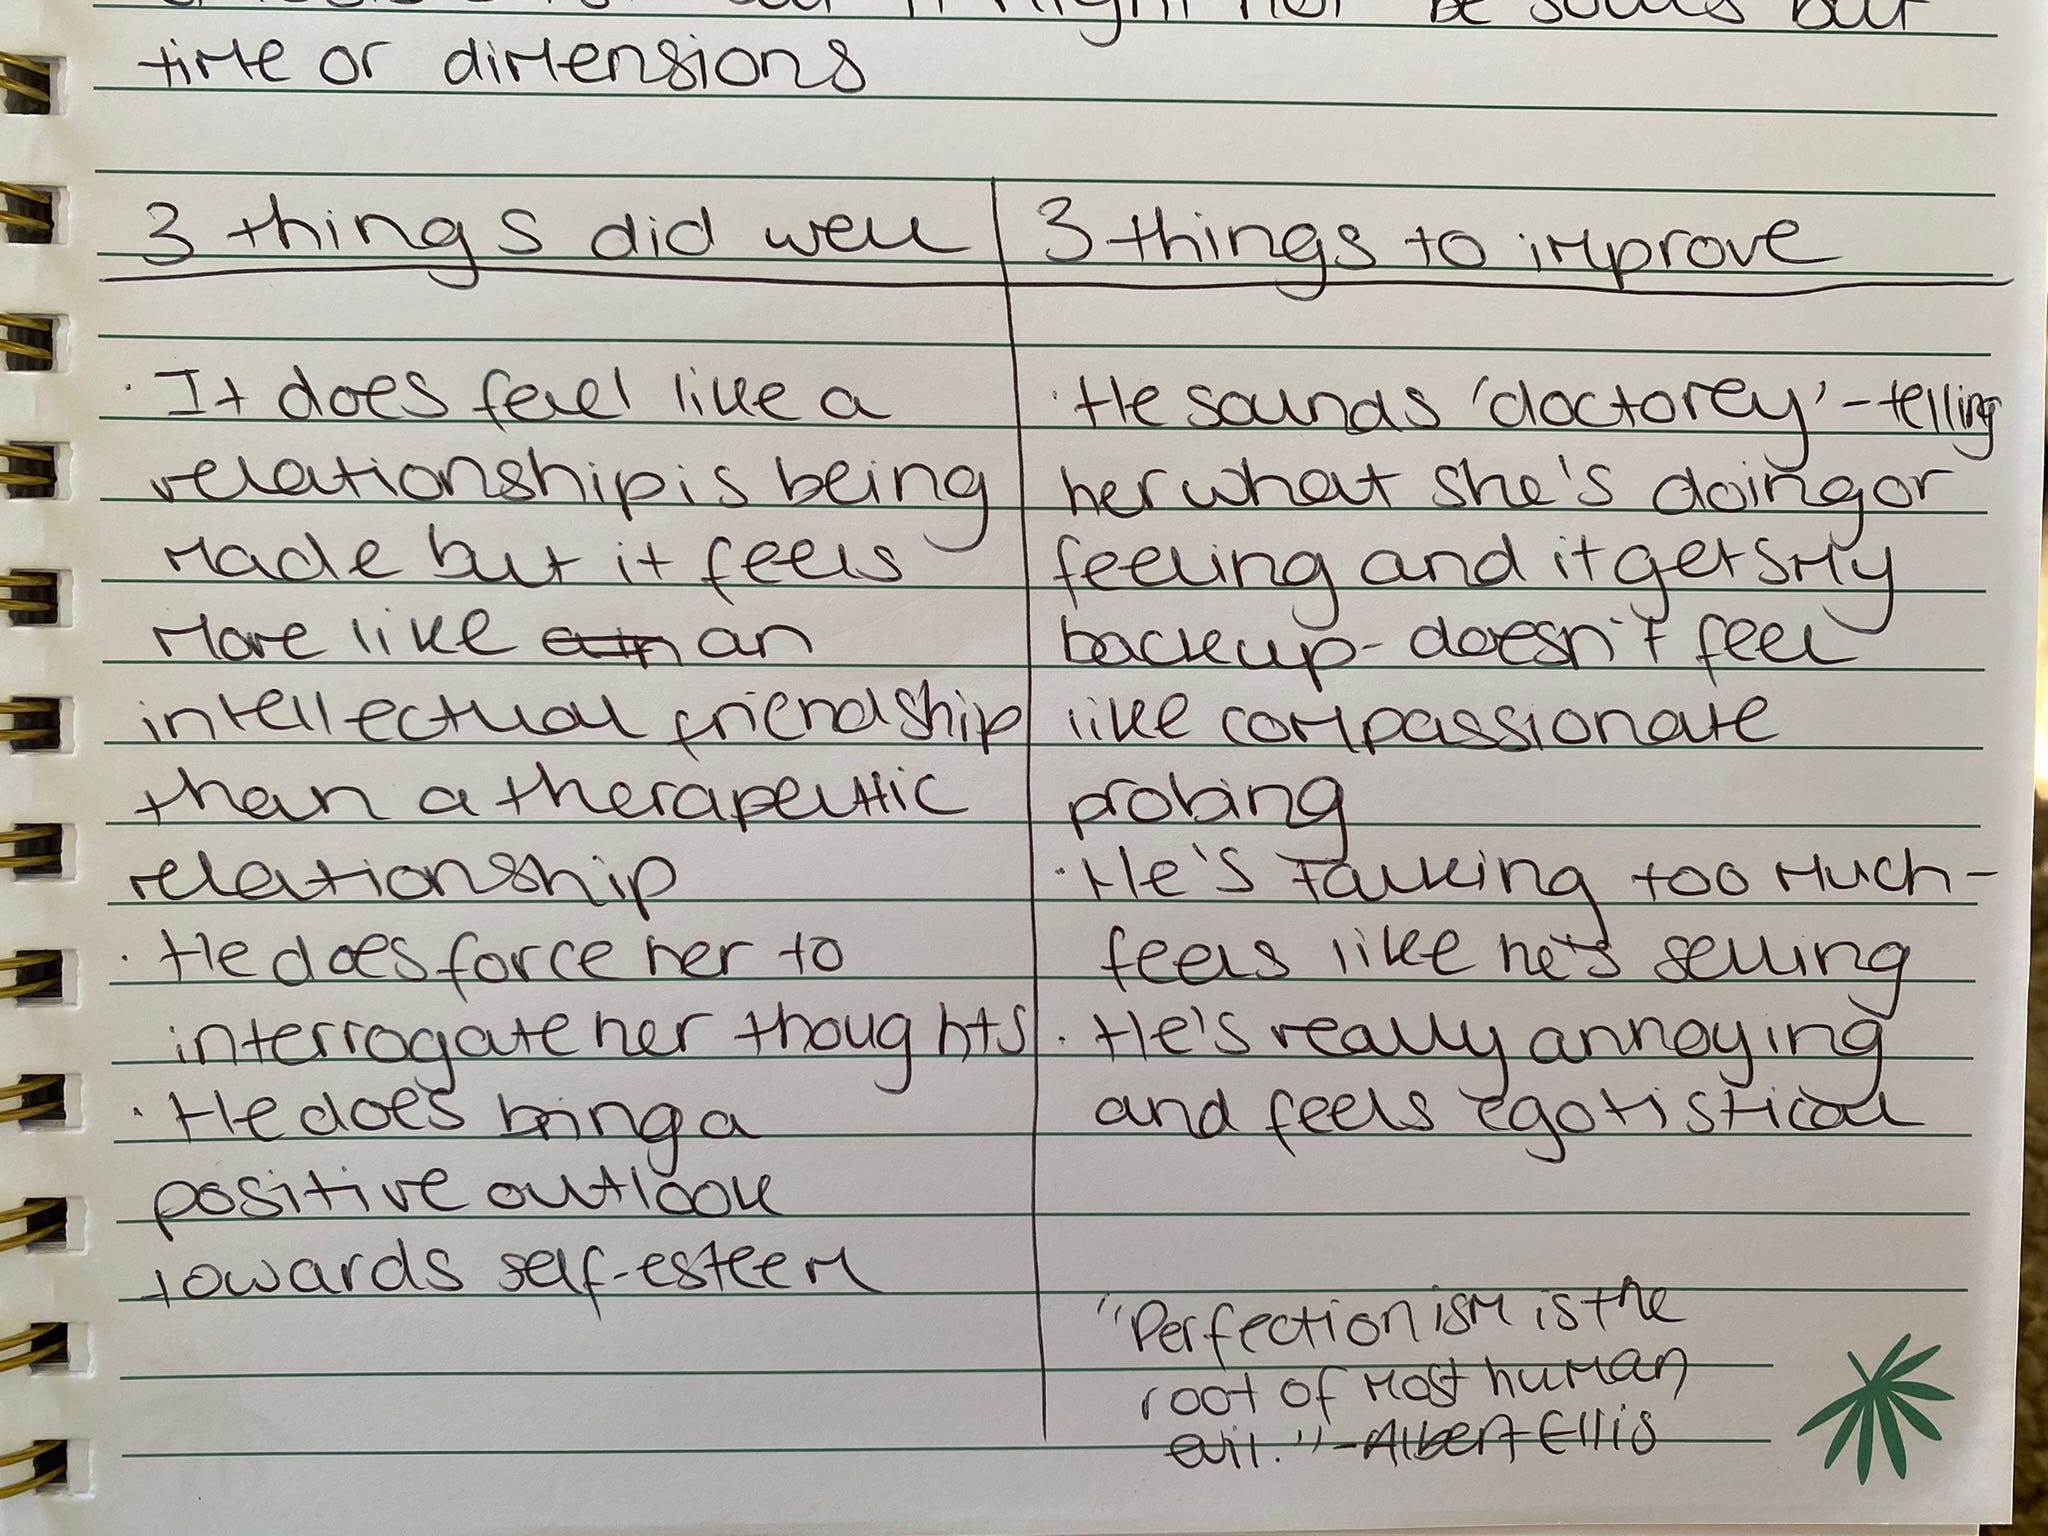 might not be souls but
time or dimensions
3 things did well
It does feel like a
relationship is being
made but it feels
more like an
intellectual friendship
than a therapeutic
relationship
· He does force her to
interrogate her thoughts
· He does bring a
positive outlook
towards self-esteem
3 things to improve
· He sounds 'doctorey' - telling
her what she's doing or
feeling and it gets my
back up - doesn't feel
like compassionate
probing
· He's talking too much -
feels like he's selling
· He's really annoying
and feels egotistical
"Perfectionism is the
root of most human
evil." - Albert Ellis